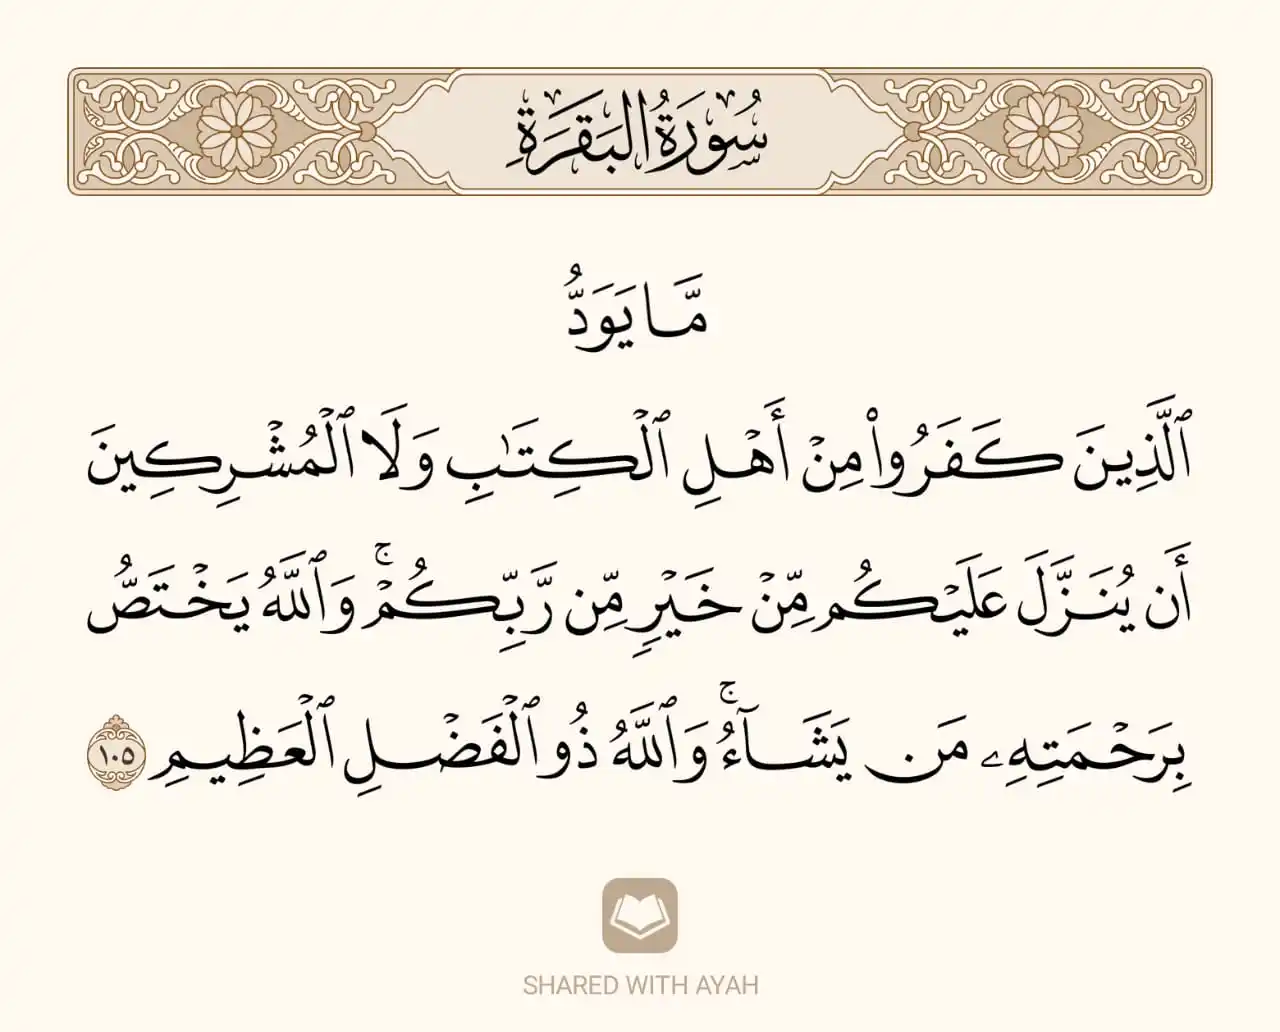 سُورَةُ البَقَرَةِ
مَّا يَوَدُّ
ٱلَّذِينَ كَفَرُوا۟ مِنْ أَهْلِ ٱلْكِتَـٰبِ وَلَا ٱلْمُشْرِكِينَ
أَن يُنَزَّلَ عَلَيْكُم مِّنْ خَيْرٍ مِّن رَّبِّكُمْ ۚ وَٱللَّهُ يَخْتَصُّ
بِرَحْمَتِهِۦ مَن يَشَآءُ ۚ وَٱللَّهُ ذُو ٱلْفَضْلِ ٱلْعَظِيمِ ١٠٥
SHARED WITH AYAH